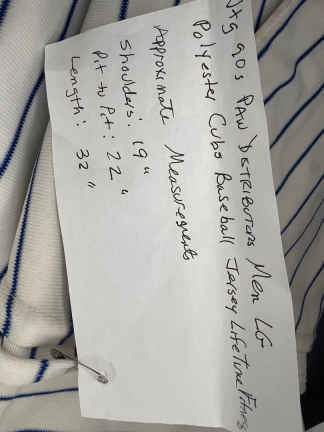 Vtg 90s PAW DISTRIBUTORS Men LG
Polyester Cubs Baseball Jersey Lifetime Fitness
Approximate Measurements
Shoulders: 19"
Pit to Pit: 22"
Length: 32"